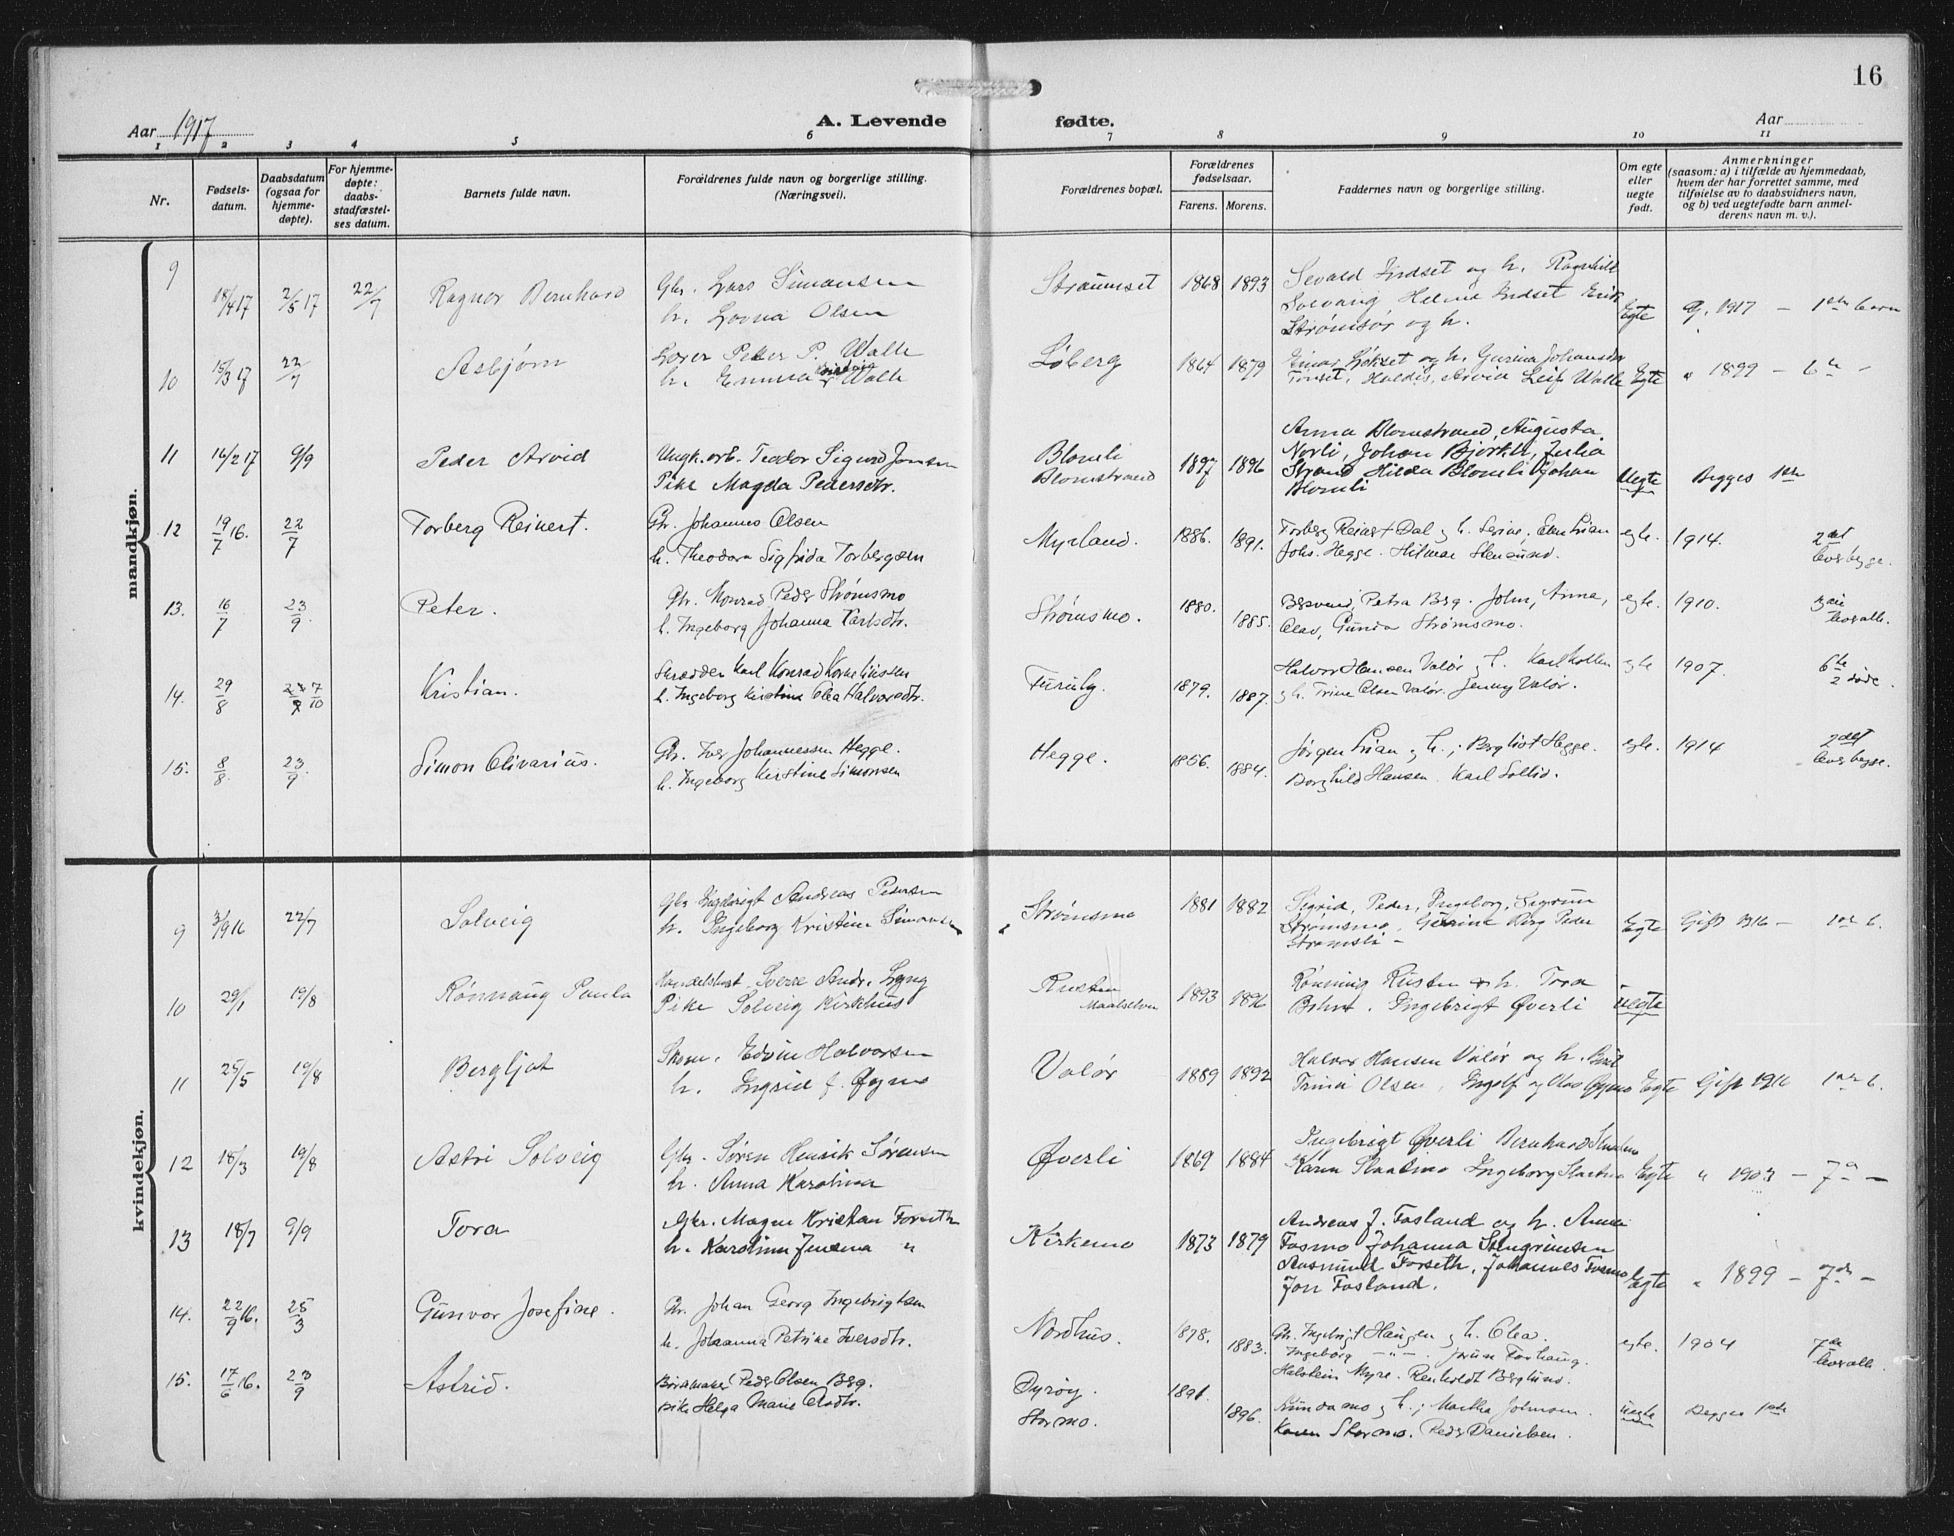 16
Aar 1917
A. Levende fødte.
Aar
1 2 3 4 5 6 7 8 9 10 11
Nr.
Fødsels-
datum.
Daabsdatum
(ogsaa for
hjemme-
døpte).
For hjemme-
døpte:
daabs-
stadfæstel-
ses datum.
Barnets fulde navn.
Forældrenes fulde navn og borgerlige stilling.
(Næringsvei).
Forældrenes bopæl.
Forældrenes
fødselsaar.
Farens. Morens.
Faddernes navn og borgerlige stilling.
Om egte
eller
uegte
født.
Anmerkninger
(saasom: a) i tilfælde av hjemmedaab,
hvem der har forrettet samme, med
tilføielse av to daabsvidners navn,
og b) ved uegtefødte barn anmel-
derens navn m. v.).
mandkjøn.
9 18/4 17 2/5 17 22/7 Ragnar Bernhard
Gbr. Lars Simonsen
h. Lovna Olsen
Straumset 1868 1893
Sevald Endset og h. Ragnhild
Solvang Helma Endset Erik
Strømsør og h.
Egte G. 1917 – 1ste barn
10 15/3 17 22/7 Asbjørn
Lærer Peter P. Walle
h. Emma Walle
Løberg 1864 1879
Einar Løkset og h. Gurina Johansen
Tonset, Haldis, Arvid Leif Walle
Egte " 1899 – 6te
11 16/2 17 9/9 Peder Arvid
Ungk. arb. Teodor Sigurd Jensen
Pike Magda Pedersdtr.
Blomli
Blomstrand
1897 1896
Anna Blomstrand, Augusta
Norli, Johan Bjørkli, Julia
Strand Hilda Blomli Johan
Blomli
Uegte Begges 1ste
12 19/7 16. 22/7 Torberg Reinert.
Gbr. Johannes Olsen
h. Theodora Sigfrida Torbergsen
Myrland. 1886. 1891.
Torberg Reinert Dal og h. Serine, Even Lian
Johs. Hegge. Hilmar
egte. 1914. 2det
lever begge.
13. 16/7 23/9. Peter.
Gbr. Monrad Peder Strømsmo
h. Ingeborg Johanna Karlsdtr.
Strømsmo. 1880. 1885.
Petra Berg. John, Anna,
Olav, Gunda Strømsmo.
egte. 1910. 3die
lever alle.
14. 29/8 23/9 7/10 Kristian.
Skrædder Karl Konrad Korneliussen
h. Ingeborg Kirstine Olea Halvorsdtr.
Furuly. 1879. 1887.
Halvor Hansen Valør og h. Karl Kollen
og h. Trine Olsen Valør. Jenny Valør.
egte 1907. 6te
2 døde.
15. 8/8 23/9. Simon Olivarius.
Gbr. Iver Johannessen Hegge.
h. Ingeborg Kirstine Simonsen
Hegge. 1856. 1884.
Jørgen Lian og h.; Bergliot Hegge.
Borghild Hansen. Karl Sollid.
egte. 1914 2det
lever begge.
kvindekjøn.
9 3/9 16 22/7 Solveig
Gbr Ingebrigt Andreas Pedersen
h. Ingeborg Kristine Simonsen
Strømsmo 1881 1882
Sigrid, Peder, Ingeborg, Sigrun
Strømsmo, Gurine Berg Peder
Strømsli –
Egte Gift 1916 – 1ste b.
10 29/1 19/8 Rønnaug Paula
Handelsbest. Sverre Andr. Lyng
Pike Solveig Kirkhus
Rusten
Maalselven
1893 1896
Rønning Rusten og h. Tora
Bohm. Ingebrigt Øverli
uegte
11 25/5 19/8 Bergljot
Skom. Edvin Halvorsen
h. Ingrid f. Øgmo
Valør 1889 1892
Halvor Hansen Valør og h. Berit
Trine Olsen, Ingolf og Olav Øgmo
Egte Gift 1916 1ste b.
12 18/3 19/8 Astri Solveig
Gbr. Søren Henrik Sørensen
h. Anna Karolina
Øverli 1869 1884
Ingebrigt Øverli Bernhard
Karen Slaatmo Ingeborg Slaatmo
Egte " 1903 – 7de –
13 18/7 9/9 Tora
Gbr. Magne Kristian Forseth
h. Karoline Jensina "
Kirkemo 1873 1879
Andreas J. Fosland og h. Anna
Fosmo Johanna Stengrimsen
Aasmund Forseth, Johannes Fosmo
Jon Fosland.
Egte " 1899 – 7de –
14. 22/9 16. 25/3 Gunvor Josefine.
Gbr. Johan Georg Ingebrigtsen
h. Johanna Petrine Iversdtr.
Nordhus. 1878. 1883.
Gbr. Ingebrigt Haugen og h. Olea.
Ingeborg – " –. Jørun Forhaug.
Halstein Myre. Renholdt Berglund.
egte. 1904 7de
lever alle.
15. 17/6 16. 23/9 Astrid.
Børsemaker Peder Olsen Berg.
pike Helga Marie Olsdtr.
Dyrøy.
Stormo.
1891. 1896.
Nundamo og h.; Martha Johnsen.
Karen Stormo. Peder Danielsen.
uegte Begges 1ste